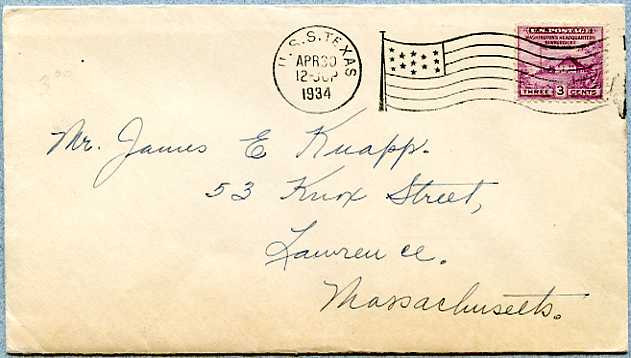 3.00
U.S.S. TEXAS
APR 30
12-30P
1934
U.S. POSTAGE
WASHINGTON'S HEADQUARTERS
NEWBURGH
THREE 3 CENTS
Mr. James E Knapp.
53 Knox Street,
Lawrence.
Massachusetts.